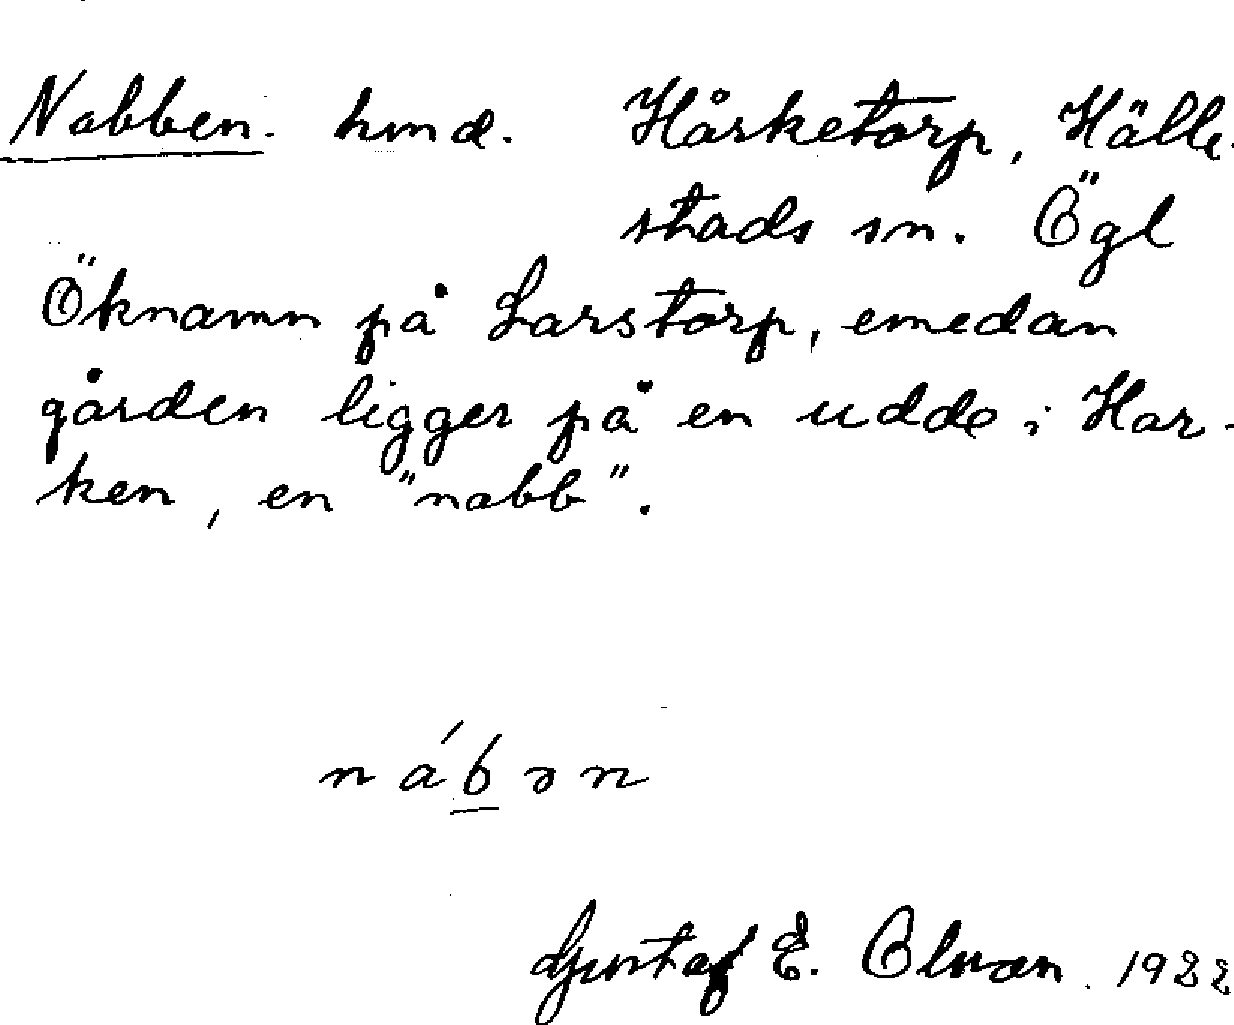 Nabben. hmd. Hårketorp, Hälle-
stads sn. Ögl
Öknamn på Larstorp, emedan
gården ligger på en udde i Har-
ken, en "nabb".
nábən
Gustaf E. Olsson. 1922